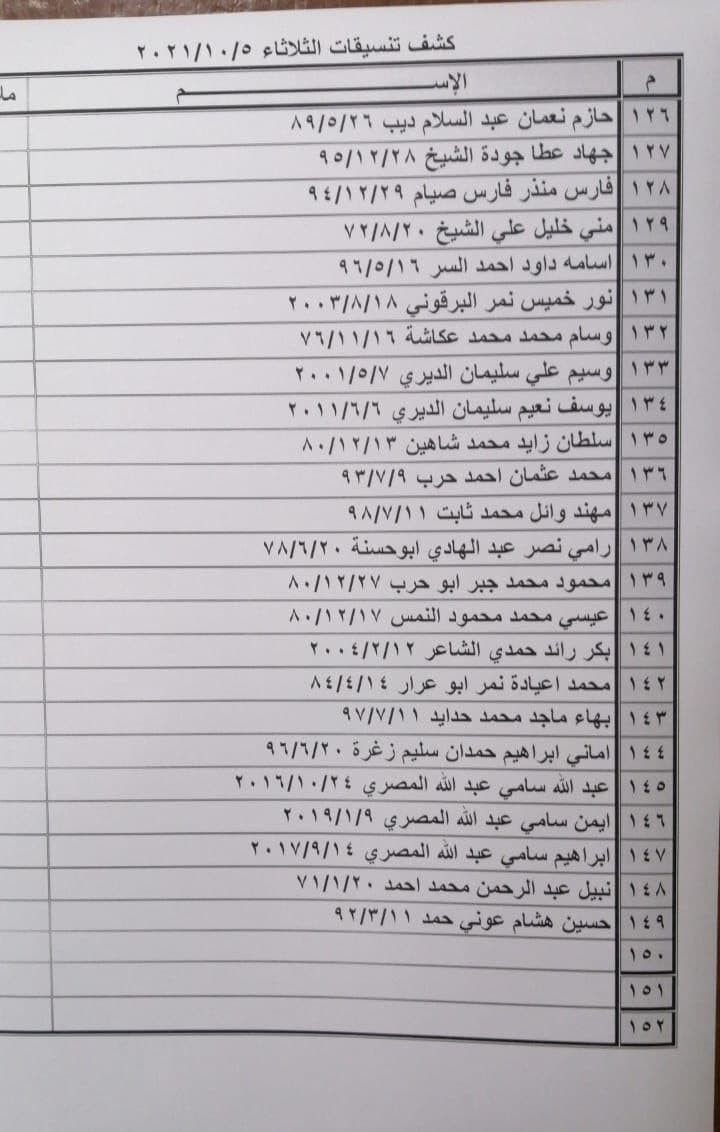 كشف تنسيقات الثلاثاء ٢٠٢١/١٠/٥
م الإســـــــــــم
١٢٦ حازم نعمان عبد السلام ديب ٨٩/٥/٢٦
١٢٧ جهاد عطا جودة الشيخ ٩٥/١٢/٢٨
١٢٨ فارس منذر فارس صيام ٩٤/١٢/٢٩
١٢٩ مني خليل علي الشيخ ٧٢/٨/٢٠
١٣٠ اسامه داود احمد السر ٩٦/٥/١٦
١٣١ نور خميس نمر البرقوني ٢٠٠٣/٨/١٨
١٣٢ وسام محمد محمد عكاشة ٧٦/١١/١٦
١٣٣ وسيم علي سليمان الديري ٢٠٠١/٥/٧
١٣٤ يوسف نعيم سليمان الديري ٢٠١١/٦/٦
١٣٥ سلطان زايد محمد شاهين ٨٠/١٢/١٣
١٣٦ محمد عثمان احمد حرب ٩٣/٧/٩
١٣٧ مهند وائل محمد ثابت ٩٨/٧/١١
١٣٨ رامي نصر عبد الهادي ابوحسنة ٧٨/٦/٢٠
١٣٩ محمود محمد جبر ابو حرب ٨٠/١٢/٢٧
١٤٠ عيسي محمد محمود النمس ٨٠/١٢/١٧
١٤١ بكر رائد حمدي الشاعر ٢٠٠٤/٢/١٢
١٤٢ محمد اعيادة نمر ابو عرار ٨٤/٤/١٤
١٤٣ بهاء ماجد محمد حدايد ٩٧/٧/١١
١٤٤ اماني ابراهيم حمدان سليم زغرة ٩٦/٦/٢٠
١٤٥ عبد الله سامي عبد الله المصري ٢٠١٦/١٠/٢٤
١٤٦ ايمن سامي عبد الله المصري ٢٠١٩/١/٩
١٤٧ ابراهيم سامي عبد الله المصري ٢٠١٧/٩/١٤
١٤٨ نبيل عبد الرحمن محمد احمد ٧١/١/٢٠
١٤٩ حسين هشام عوني حمد ٩٢/٣/١١
١٥٠
١٥١
١٥٢